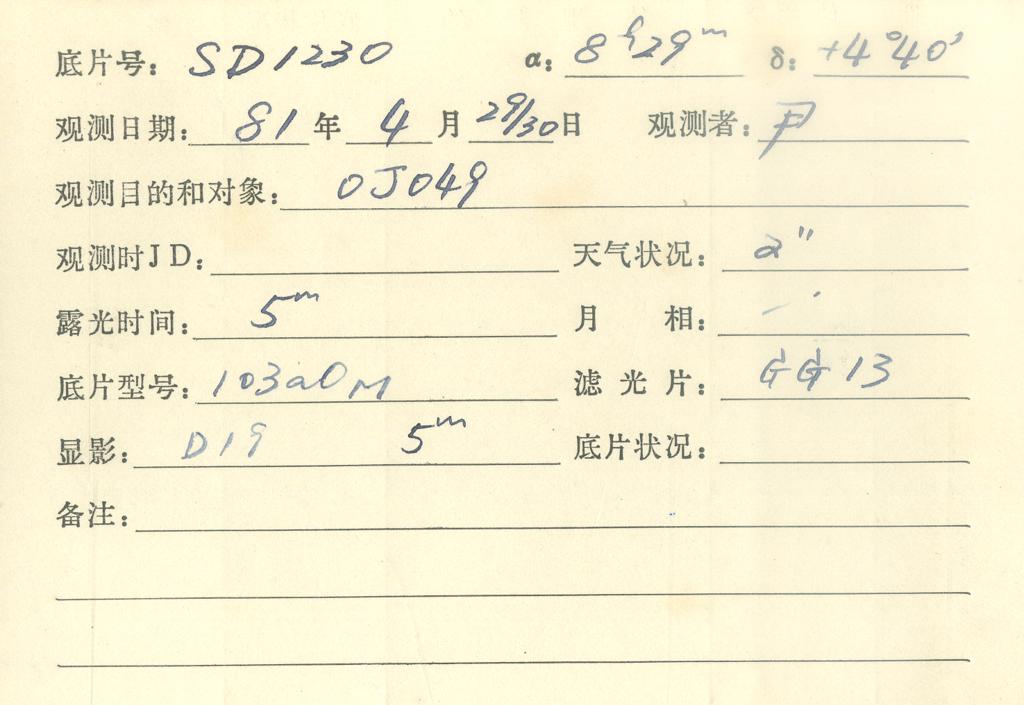 底片号: SD1230 α: 8h29m δ: +4°40'
观测日期: 81年 4月 29/30日 观测者:
观测目的和对象: OJ049
观测时JD: 天气状况: 2"
露光时间: 5m 月 相:
底片型号: 103aO M 滤光片: GG13
显影: D19 5m 底片状况:
备注: